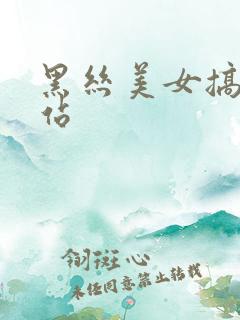 黑丝美女搞
站
翎斑心
未经同意禁止转载